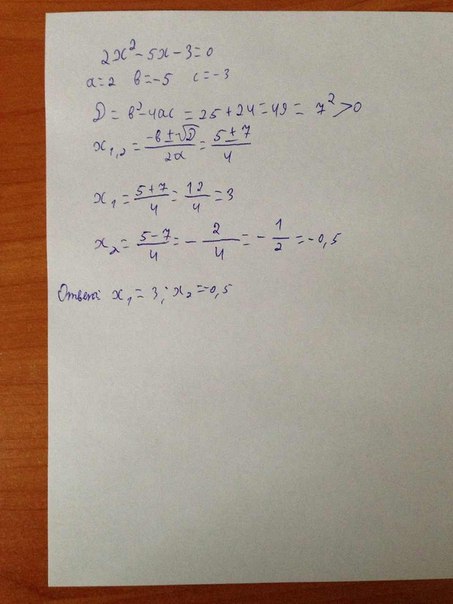 2x² - 5x - 3 = 0
a = 2 в = -5 c = -3
D = в² - 4ac = 25 + 24 = 49 = 7² > 0
x₁,₂ = (-в ± √D)/2a = (5 ± 7)/4
x₁ = (5 + 7)/4 = 12/4 = 3
x₂ = (5 - 7)/4 = - 2/4 = - 1/2 = -0,5
Ответ: x₁ = 3; x₂ = -0,5